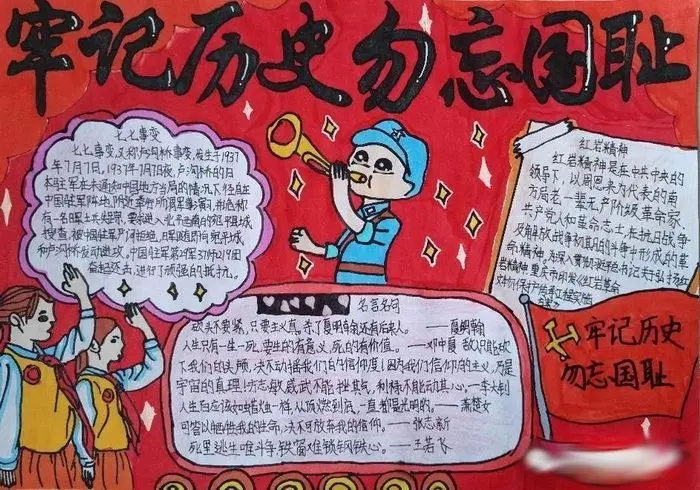 牢记历史勿忘国耻
七七事变
七七事变,又称卢沟桥事变,发生于1937
年7月7日,1937年7月7日夜,卢沟桥的日
本驻军在未通知中国地方当局的情况下,径自在
中国驻军阵地附近举行所谓军事演习,并诡称
有一名日军士兵失踪,要求进入北平西南的宛平县城
搜查,被中国驻军严词拒绝,日军随即向宛平城
和卢沟桥发动进攻。中国驻军第29军37师219团
奋起还击,进行了顽强的抵抗。
红岩精神
红岩精神是在中共中央的
领导下,以周恩来为代表的南
方局老一辈无产阶级革命家、
共产党人和革命志士在抗日战争
及解放战争初期的斗争中形成的革
命精神,为深入贯彻
岩精神
名言名句
砍头不要紧,只要主义真,杀了夏明翰还有后来人。——夏明翰
人生只有一生一死,要生的有意义,死的有价值。——邓中夏 敌人只能砍
下我们的头颅,决不动摇我们的信仰!因为我们信仰的主义,乃是
宇宙的真理!方志敏 威武不能挫其气,利禄不能动其心。—李大钊
人生白应该如蜡烛一样,从顶燃到底,一直都是光明的。——萧楚女
可皆以牺牲我的生命,决不可放弃我的信仰。——张志新
死里逃生唯斗争,铁窗难锁钢铁心。——王若飞
牢记历史
勿忘国耻